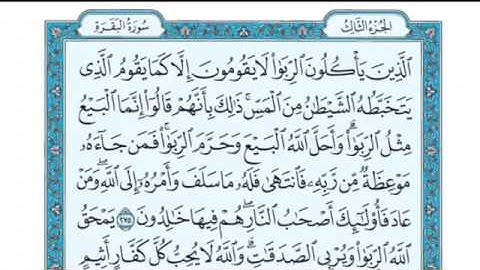 الجزء الثالث سورة البقرة
الَّذِينَ يَأْكُلُونَ الرِّبَوٰا۟ لَا يَقُومُونَ إِلَّا كَمَا يَقُومُ الَّذِى
يَتَخَبَّطُهُ الشَّيْطَٰنُ مِنَ الْمَسِّ ۚ ذَٰلِكَ بِأَنَّهُمْ قَالُوٓا۟ إِنَّمَا الْبَيْعُ
مِثْلُ الرِّبَوٰا۟ ۗ وَأَحَلَّ اللَّهُ الْبَيْعَ وَحَرَّمَ الرِّبَوٰا۟ ۚ فَمَن جَآءَهُۥ
مَوْعِظَةٌ مِّن رَّبِّهِۦ فَانتَهَىٰ فَلَهُۥ مَا سَلَفَ وَأَمْرُهُۥٓ إِلَى اللَّهِ ۖ وَمَنْ
عَادَ فَأُو۟لَٰٓئِكَ أَصْحَٰبُ النَّارِ ۖ هُمْ فِيهَا خَٰلِدُونَ ٢٧٥ يَمْحَقُ
اللَّهُ الرِّبَوٰا۟ وَيُرْبِى الصَّدَقَٰتِ ۗ وَاللَّهُ لَا يُحِبُّ كُلَّ كَفَّارٍ أَثِيمٍ